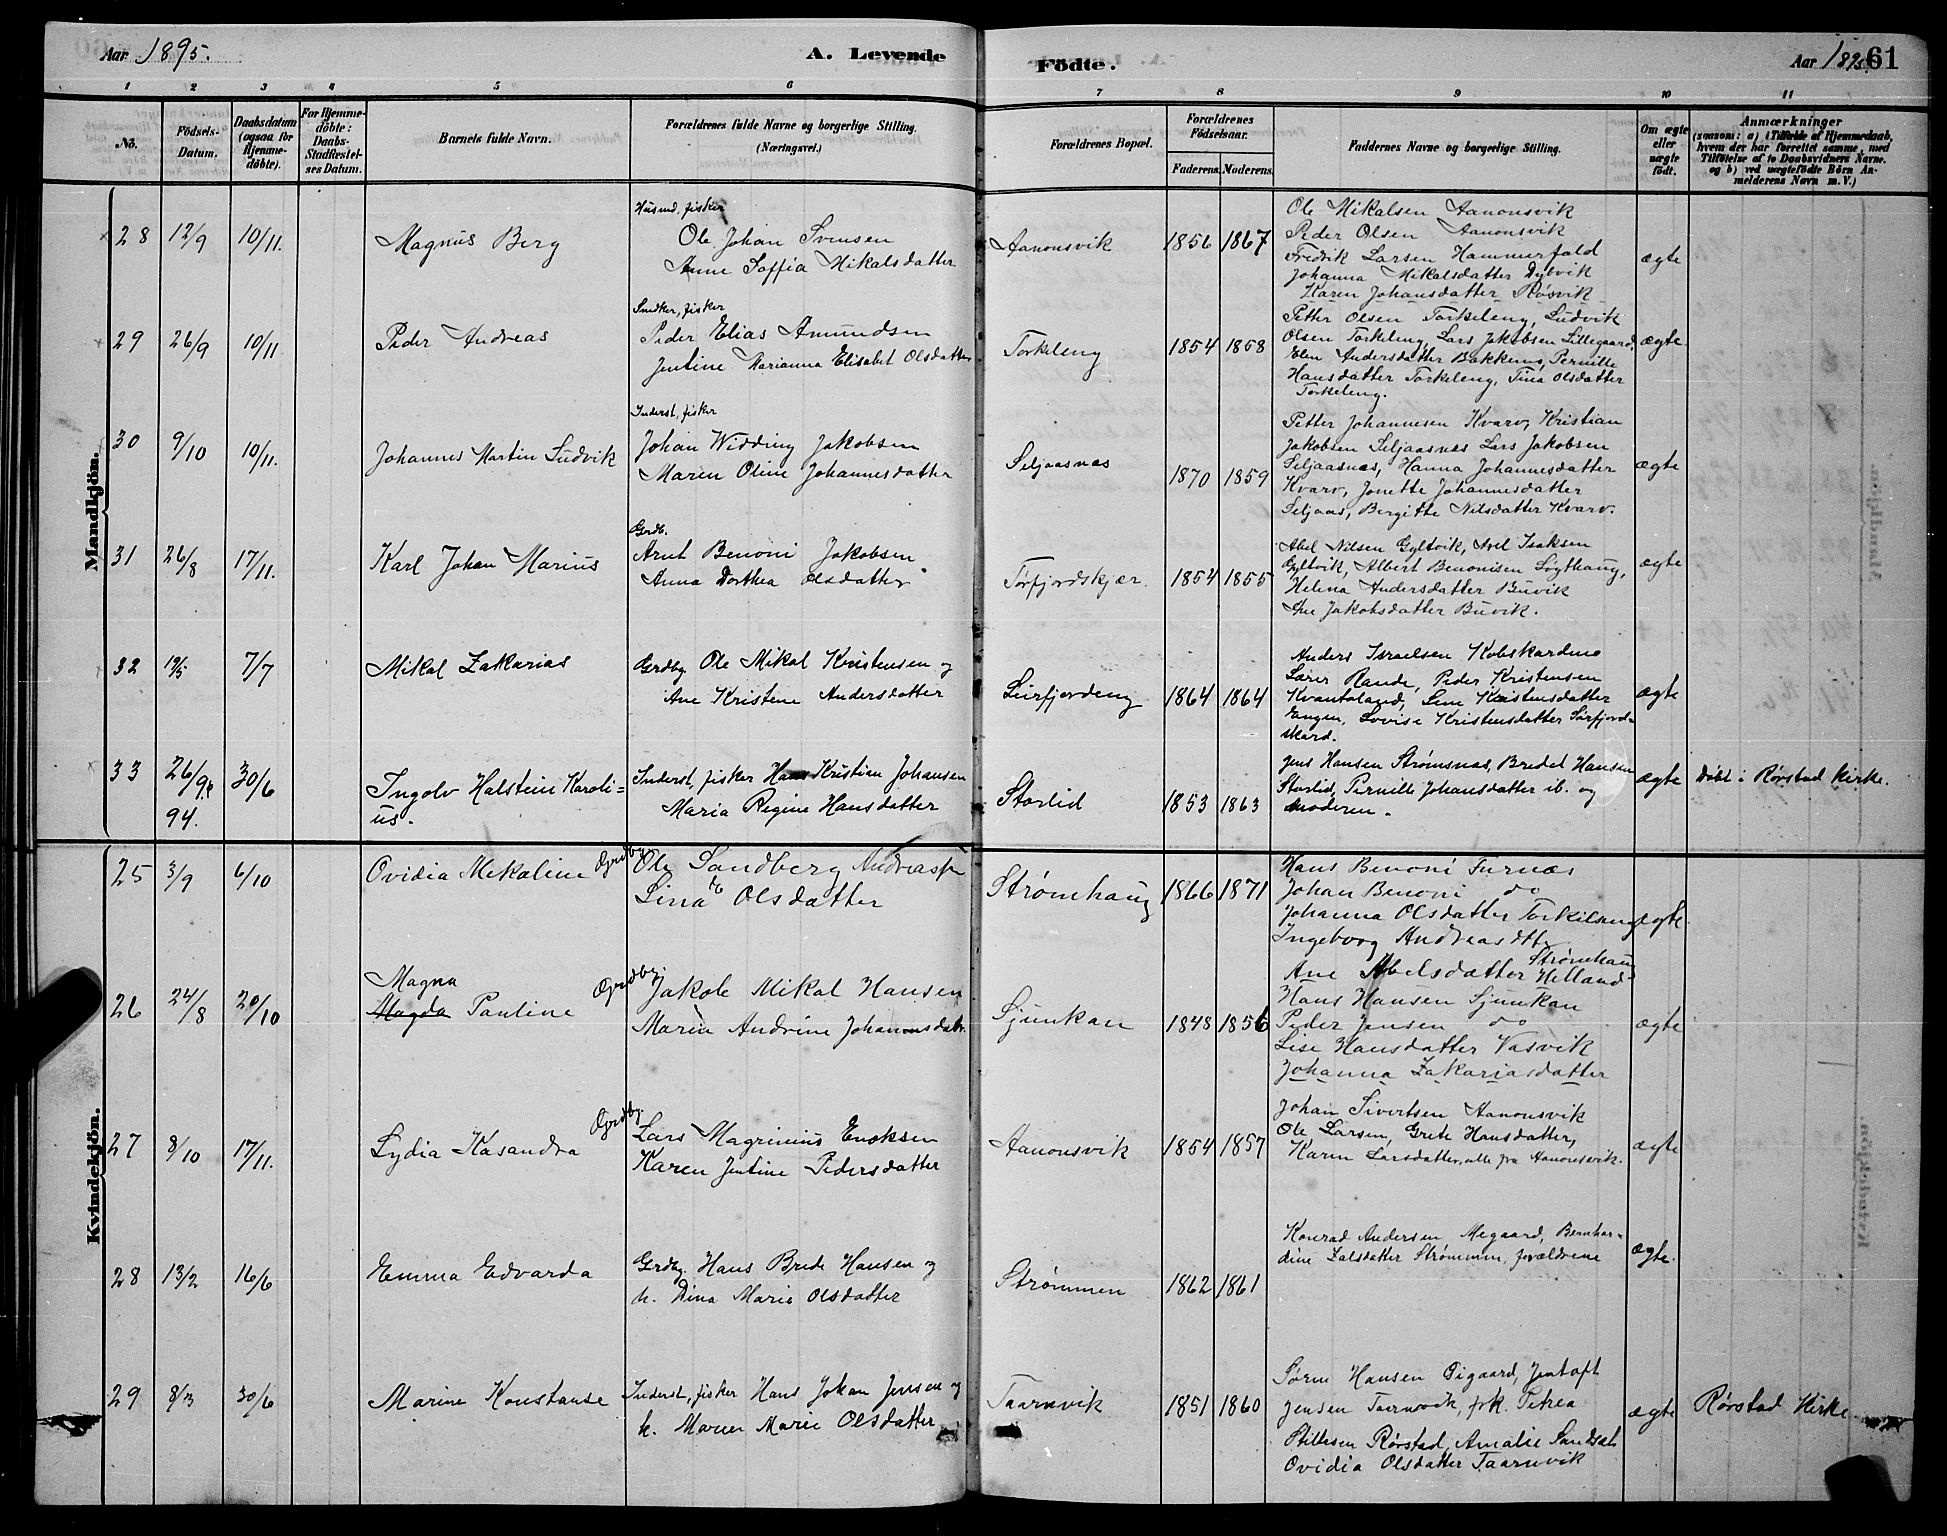 Aar 1895.
A. Levende
Födte.
Aar 1895.
61
1 2 3 4 5 6 7 8 9 10 11
No.
Födsels-
Datum.
Daabsdatum
(ogsaa for
Hjemme-
döbte).
For Hjemme-
döbte:
Daabs-
Stadfæstel-
ses Datum.
Barnets fulde Navn.
Forældrenes fulde Navne og borgerlige Stilling.
(Næringsvei.)
Forældrenes Bopæl.
Forældrenes
Födselsaar.
Faderens. Moderens.
Faddernes Navne og borgerlige Stilling.
Om ægte
eller
uægte
födt.
Anmærkninger
(saasom: a) i Tilfælde af Hjemmedaab,
hvem der har forrettet samme, med
Tilföielse af to Daabsvidners Navne.
og b) ved uægtefödte Börn An-
melderens Navn m. V.)
Mandkjön.
28 12/9 10/11. Magnus Berg
Husmd. fisker
Ole Johan Svensen
Anne Soffia Mikalsdatter
Aanonsvik 1856 1867
Ole Mikalsen Aanonsvik
Peder Olsen Aanonsvik
Fredrik Larsen Hammerfald
Johanna Mikalsdatter Dybvik
Karen Johansdatter Røsvik
ægte
29 26/9 10/11 Peder Andreas
Snedker, fisker
Peder Elias Amundsen
Jentine Marianna Elisabet Olsdatter
Torkeleng 1854 1858
Petter Olsen Torkeleng, Ludvik
Olsen Torkeleng, Lars Jakobsen Lillegaard,
Elen Andersdatter Bakkens, Pernille
Hansdatter Torkeleng, Tina Olsdatter
Torkeleng.
ægte
30 9/10 10/11. Johannes Martin Ludvik
Inderst, fisker
Johan Widding Jakobsen
Maren Oline Johannesdatter
Seljaasnæs 1870 1859
Petter Johannesen Kvarv, Kristian
Jakobsen Seljaasnæs Lars Jakobsen
Seljaasnæs, Hanna Johannesdatter
Kvarv, Jonette Johannesdatter
Seljaas, Bergitte Nilsdatter Kvarv.
ægte
31 26/8 17/11. Karl Johan Marius
Grdb.
Arnt Benoni Jakobsen
Anna Dorthea Olsdatter
Torfjordskjær. 1854 1855
Abel Nilsen Gyltvik, Axel Isaksen
Gyltvik, Albert Benonisen Løgthaug,
Helena Andersdatter Buvik
Ane Jakobsdatter Buvik.
ægte
32 19/5 7/7 Mikal Zakarias
Grdby Ole Mikal Kristensen og
Ane Kristene Andersdatter
Leirfjorden 1864 1864
Anders Israelsen Kobskardmo
Lærer Rande, Peder Kristensen
Kvantoland, Line Kristensdatter
Engen, Lovise Kristensdatter Sørfjord-
skard.
ægte
33 26/9 94. 30/6 Ingolv Halstein Karoli-
us.
Inderst, fisker Hans Kristian Johansen
Maria Regine Hansdatter
Storlid 1853 1863
Jens Hansen Strømsnæs, Bredel Hansen
Storlid, Pernille Johansdatter ib. og
Moderen.
ægte
Døbt i Rørstad Kirke.
Kvindekjön.
25 3/9 6/10 Ovidia Mekaline
Grdbr.
Ole Sandberg Andreass.
Lina Olsdatter
Strømhaug 1866 1871
Hans Benoni Furnæs
Johan Benoni do
Johanna Olsdatter Torkilseng
Ingeborg Andreasdtt.
Strømhaug
ægte.
26 24/8 20/10 Magna
Magda Pauline
Grdby.
Jakob Mikal Hansen
Maria Andrine Johannesdatr.
Sjunkan 1848 1856
Ane Abelsdatter Helland
Hans Hansen Sjunkan
Peder Jensen do
Lise Hansdatter Vasvik
Johanna Zakariasdatter
ægte
27 8/10 17/11. Lydia Kasandra
Grdby.
Lars Magrinius Enoksen
Karen Jentine Pedersdatter
Aanonsvik 1854 1857
Johan Sivertsen Aanonsvik
Ole Larsen, Grete Hansdatter,
Karen Larsdatter, alle fra Aanonsvik.
ægte
28 13/2 16/6 Emma Edvarda
Grdby. Hans Brede Hansen og
h. Dina Marie Olsdatter
Strømmen 1862 1861
Konrad Andersen Megaard, Bernhar-
dine Zalsdatter Strømmen, forældrene
ægte.
29 8/3 30/6 Marine Konstanse
Inderst, fisker Hans Johan Jensen og
h. Maren Marie Olsdatter
Taarnvik 1851 1860
Sørine Hansen Øigaard, Jentoft
Jensen Taarnvik, frk. Petrea
Stillesen Rørstad, Amalie Sandsæt
Ovidia Olsdatter Taarnvik
ægte
Rørstad Kirke